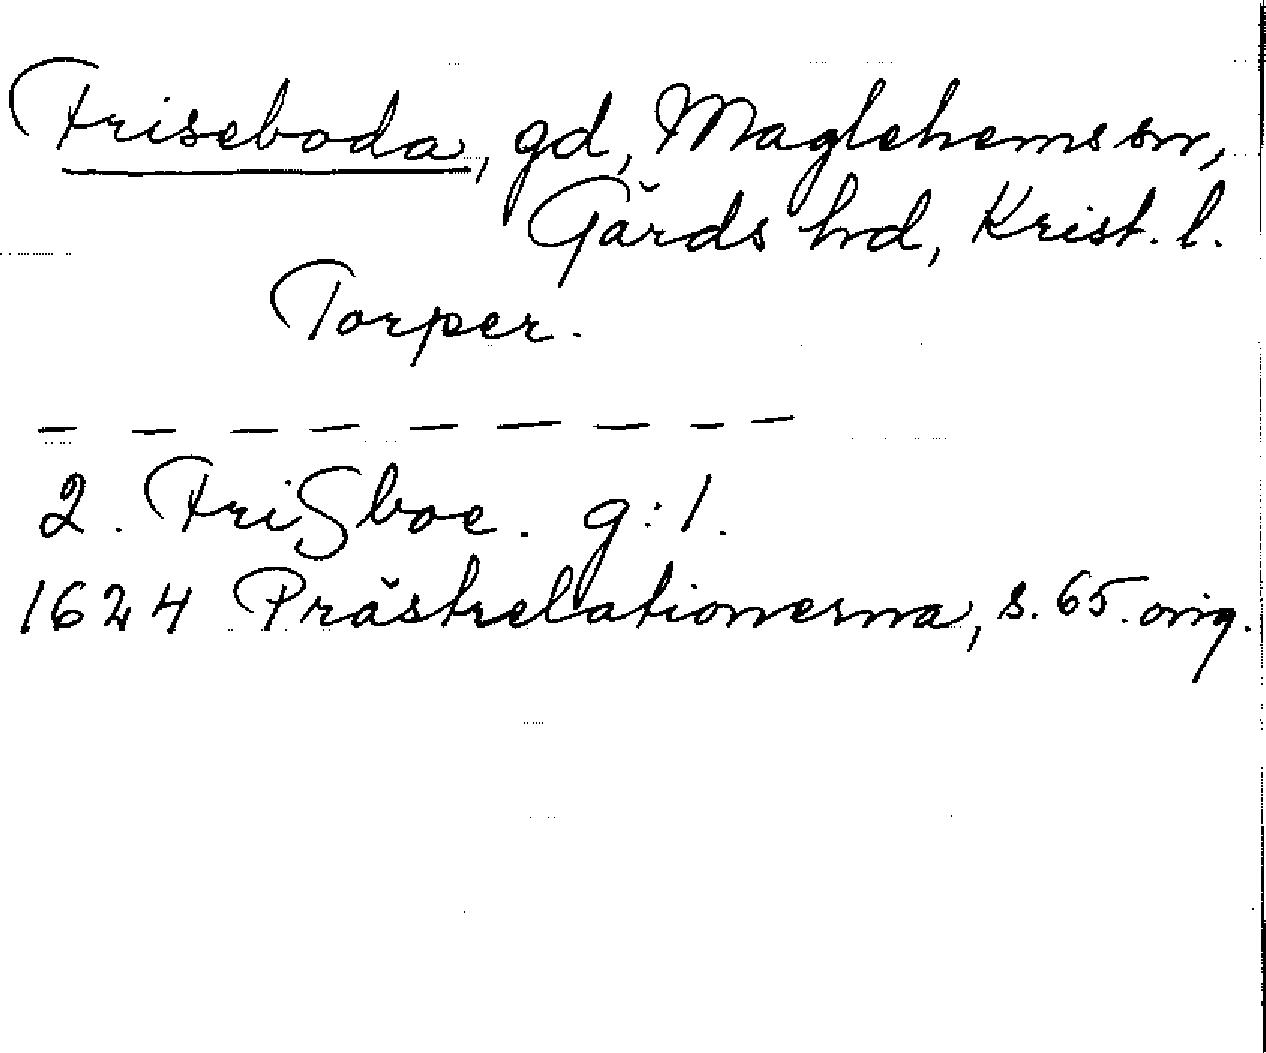 Friseboda, gd, Maglehems sn,
Gärds hd, Krist. l.
Torper.
— — — — — — — — —
2. FriSboe. g: 1.
1624 Prästrelationerna, s. 65. orig.